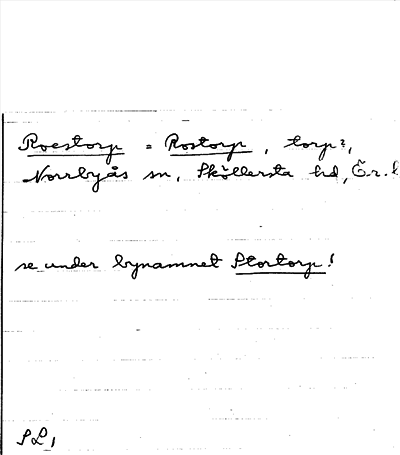 Roestorp = Rostorp, torp?,
Norrbyås sn, Sköllersta hd, Ö.r.l
se under bynamnet Stortorp!
SL,